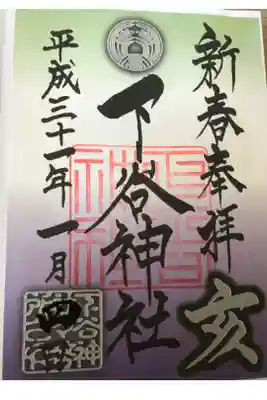 新春奉拝
亥
下谷神社
平成三十一年一月
四日